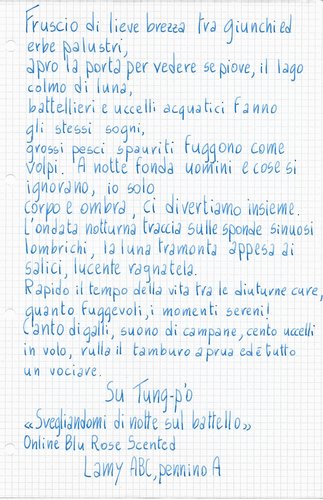 Fruscio di lieve brezza tra giunchi ed
erbe palustri,
apro la porta per vedere se piove, il lago
colmo di luna,
battellieri e uccelli acquatici fanno
gli stessi sogni,
grossi pesci spauriti fuggono come
volpi. A notte fonda uomini e cose si
ignorano, io solo
corpo e ombra, ci divertiamo insieme.
L'ondata notturna traccia sulle sponde sinuosi
lombrichi, la luna tramonta appesa ai
salici, lucente ragnatela.
Rapido il tempo della vita tra le diuturne cure,
quanto fuggevoli, i momenti sereni!
Canto di galli, suono di campane, cento uccelli
in volo, rulla il tamburo a prua ed è tutto
un vociare.
Su Tung-p'o
«Svegliandomi di notte sul battello»
Online Blu Rose Scented
Lamy ABC, pennino A